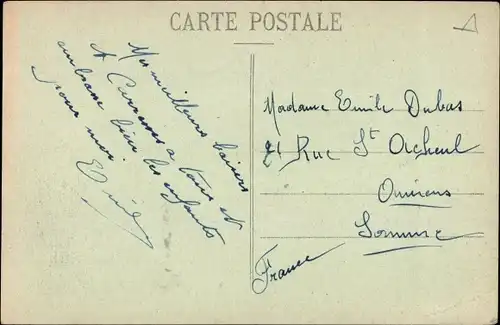 CARTE POSTALE
Mes meilleurs baisers
& Caresses a tous et
embrasse bien les enfants
pour moi
Emile
Madame Emile Dubas
21 Rue St Acheul
Amiens
Somme
France